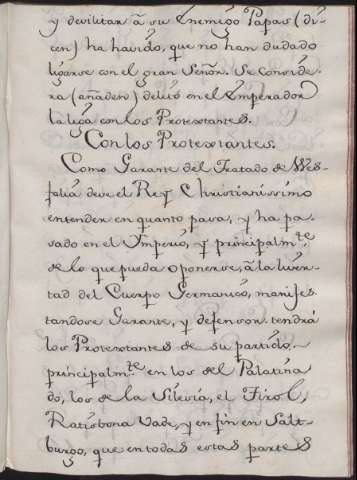 y devilitar à su Enemigo Papas (di-
cen) ha havido, que no han dudado
ligarse con el gran Señor. Se conside-
ra (añaden) delito en el Emperador
la liga con los Protextantes.
Con los Protextantes.
Como Garante del Tratado de Wes-
falia deve el Rey Christianissimo
entender en quanto pasa, y ha pa-
sado en el Ymperio, y principalm.te
de lo que pueda oponerse, à la liver-
tad del Cuerpo Germanico, manifes-
tandose Garante, y defensor tendrá
los Protextantes de su partido,
principalm.te en los del Palatina
do, los de la Silesia, el Tirol,
Ratisbona Vade, y en fin en Salt-
burgo, que en todas estas partes